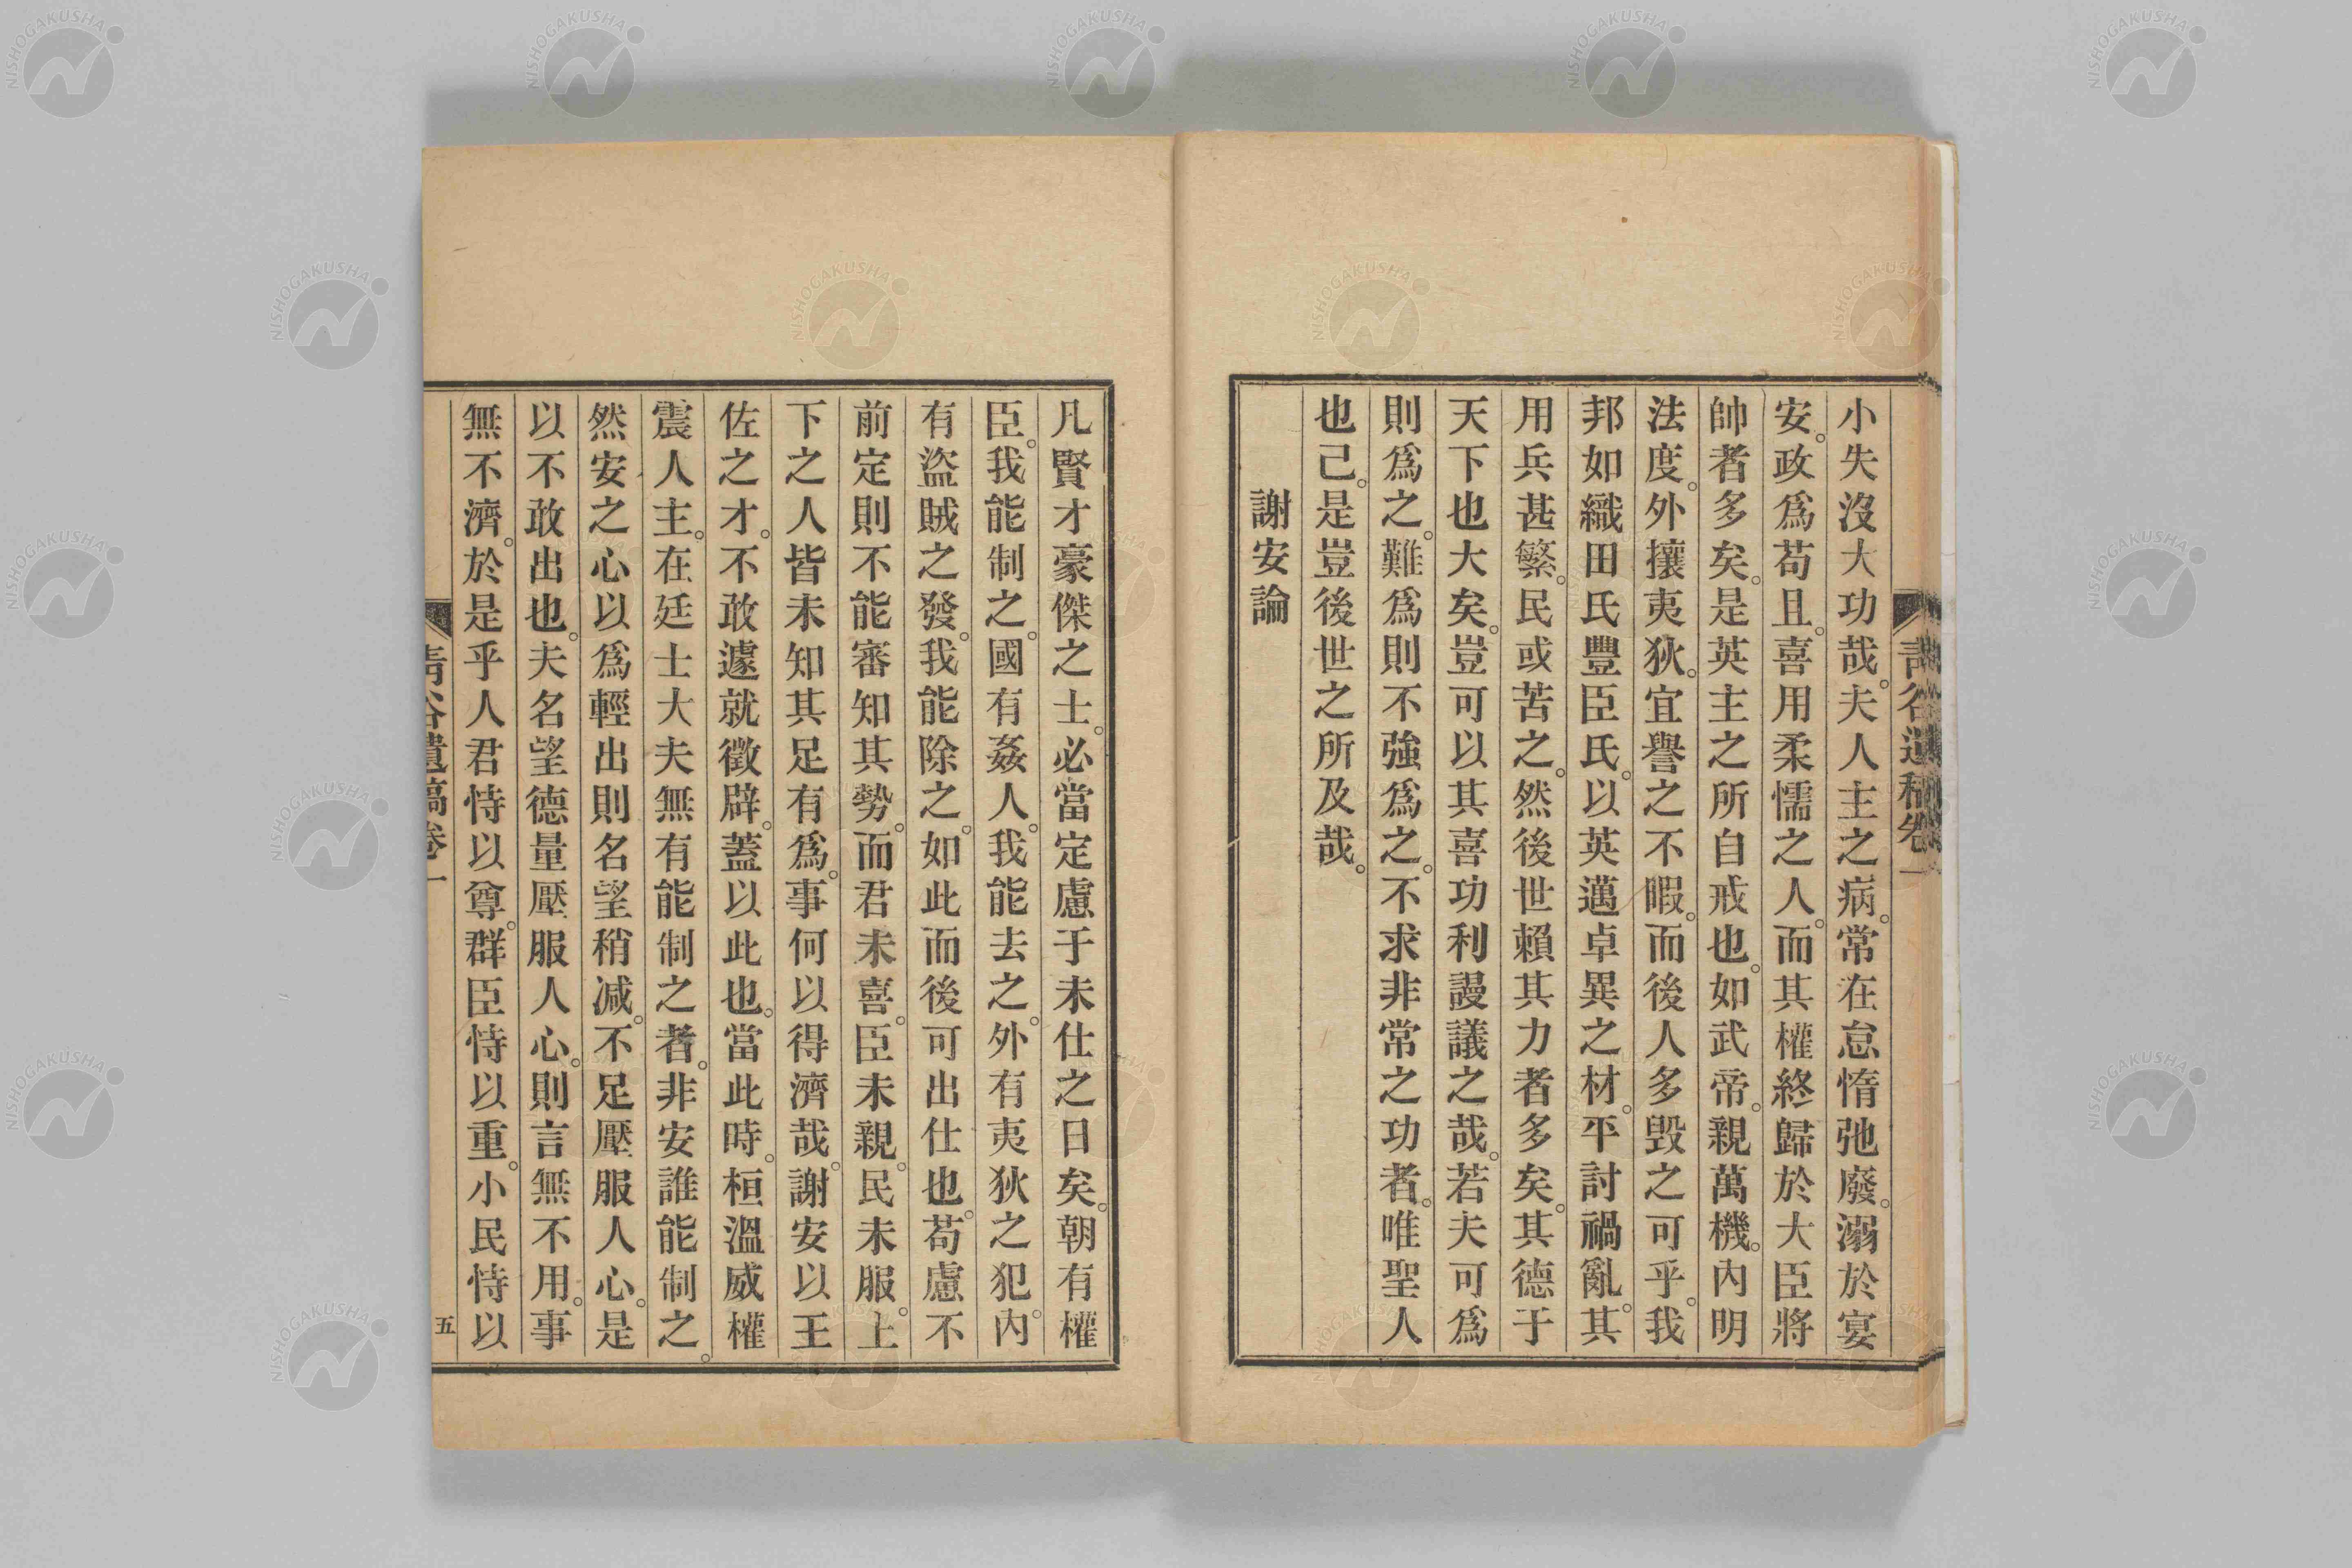 小失沒大功哉。夫人主之病。常在怠惰弛廢。溺於宴
安。政爲苟且。喜用柔懦之人。而其權終歸於大臣將
帥者多矣。是英主之所自戒也。如武帝。親萬機。內明
法度。外攘夷狄。宜譽之不暇。而後人多毀之可乎。我
邦如織田氏豐臣氏。以英邁卓異之材。平討禍亂。其
用兵甚繁。民或苦之。然後世賴其力者多矣。其德于
天下也大矣。豈可以其喜功利謾議之哉。若夫可爲
則爲之。難爲則不強爲之。不求非常之功者。唯聖人
也己。是豈後世之所及哉。
謝安論
凡賢才豪傑之士。必當定慮于未仕之日矣。朝有權
臣。我能制之。國有姦人。我能去之。外有夷狄之犯。內
有盜賊之發。我能除之。如此而後可出仕也。苟慮不
前定則不能審知其勢。而君未喜。臣未親。民未服。上
下之人皆未知其足有爲。事何以得濟哉。謝安以王
佐之才。不敢遽就徵辟。蓋以此也。當此時。桓溫威權
震人主。在廷士大夫無有能制之者。非安誰能制之。
然安之心以爲輕出則名望稍減。不足壓服人心。是
以不敢出也。夫名望德量壓服人心。則言無不用。事
無不濟。於是乎人君恃以尊。群臣恃以重。小民恃以
青谷遺稿卷一
五
NISHOGAKUSHA